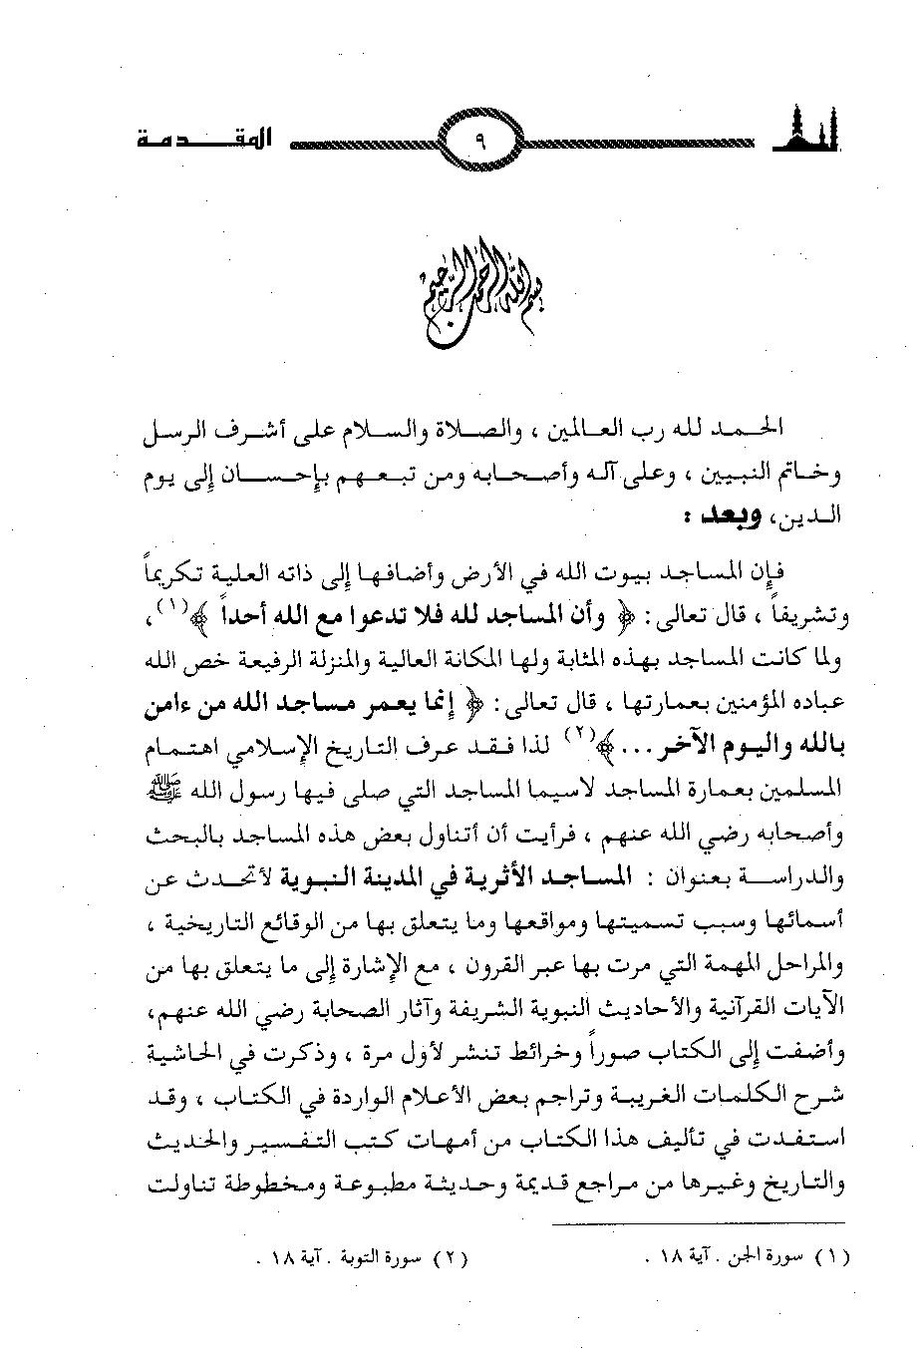 المقدمة
٩
بسم الله الرحمن الرحيم
الحمد لله رب العالمين ، والصلاة والسلام على أشرف الرسل
وخاتم النبيين ، وعلى آله وأصحابه ومن تبعهم بإحسان إلى يوم
الدين، وبعد :
فإن المساجد بيوت الله في الأرض وأضافها إلى ذاته العلية تكريماً
وتشريفاً ، قال تعالى: ﴿ وأن المساجد لله فلا تدعوا مع الله أحداً ﴾(١)،
ولما كانت المساجد بهذه المثابة ولها المكانة العالية والمنزلة الرفيعة خص الله
عباده المؤمنين بعمارتها ، قال تعالى: ﴿ إنما يعمر مساجد الله من ءامن
بالله واليوم الآخر ... ﴾(٢) لذا فقد عرف التاريخ الإسلامي اهتمام
المسلمين بعمارة المساجد لاسيما المساجد التي صلى فيها رسول الله ﷺ
وأصحابه رضي الله عنهم ، فرأيت أن أتناول بعض هذه المساجد بالبحث
والدراسة بعنوان : المساجد الأثرية في المدينة النبوية لأتحدث عن
أسمائها وسبب تسميتها ومواقعها وما يتعلق بها من الوقائع التاريخية ،
والمراحل المهمة التي مرت بها عبر القرون ، مع الإشارة إلى ما يتعلق بها من
الآيات القرآنية والأحاديث النبوية الشريفة وآثار الصحابة رضي الله عنهم،
وأضفت إلى الكتاب صوراً وخرائط تنشر لأول مرة ، وذكرت في الحاشية
شرح الكلمات الغريبة وتراجم بعض الأعلام الواردة في الكتاب ، وقد
استفدت في تأليف هذا الكتاب من أمهات كتب التفسير والحديث
والتاريخ وغيرها من مراجع قديمة وحديثة مطبوعة ومخطوطة تناولت
(١) سورة الجن . آية ١٨ .
(٢) سورة التوبة . آية ١٨ .